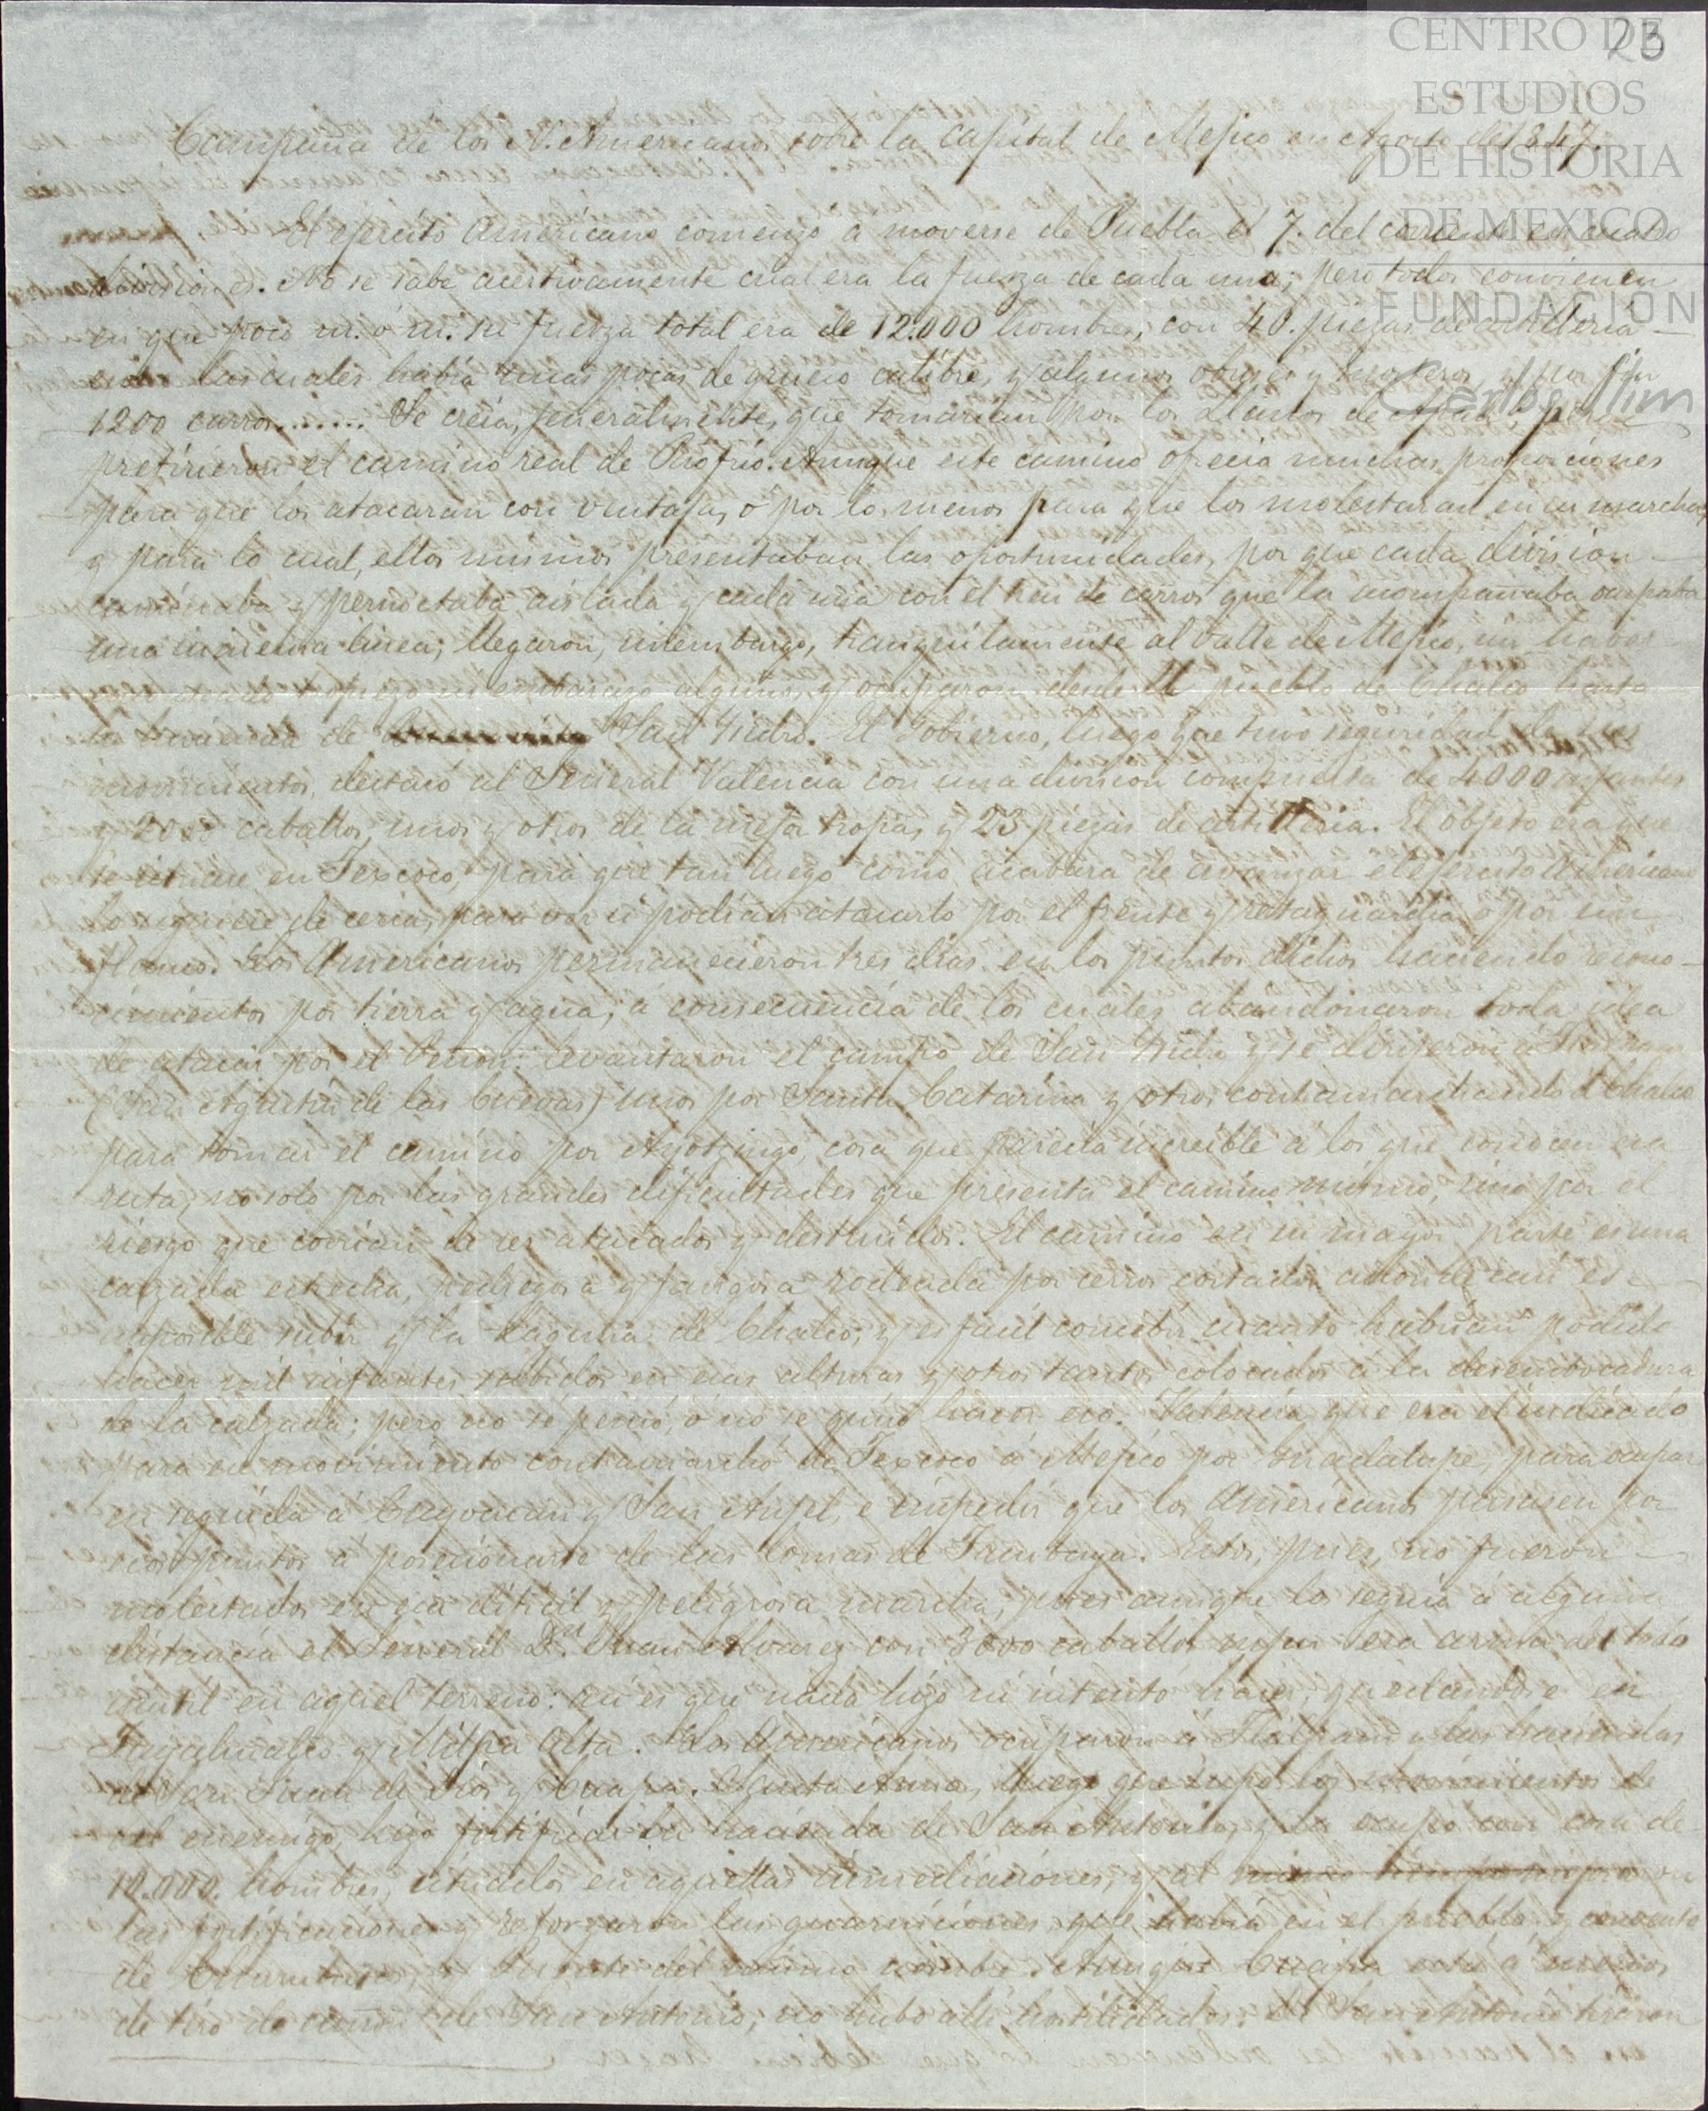 CENTRO DE
ESTUDIOS
DE HISTORIA
DE MEXICO
FUNDACIÓN
Carlos Slim
23
Campaña de los N. Americanos sobre la Capital de Mejico en Agosto de 1847.
El ejercito Americano comenzó á moverse de Puebla el 7. del corriente en cuatro
divisiones. No se sabe acertivamente cual era la fuerza de cada una; pero todos convienen
en que poco m. ó m. su fuerza total era de 12.000 hombres, con 40. piezas de artilleria
las cuales habia unas pocas de grueso calibre, y algunos obuses y morteros, y por fin
1200 carros....... Se creia, jeneralmente, que tomarian por los Llanos de Apam; pero
prefirieron el camino real de Riofrio. Aunque este camino ofrecia muchas proporciones
para que los atacaran con ventaja, ó por lo menos para que los molestaran en su marcha,
y para lo cual, ellos mismos presentaban las oportunidades, por que cada division
caminaba y pernoctaba aislada y cada una con el tren de carros que la acompañaba ocupaba
una inmensa linea; llegaron, sinembargo, tranquilamente al Valle de Mejico, sin haber
tropiezo ni embarazo alguno, y ocuparon desde el pueblo de Chalco hasta
la hacienda de San Isidro. El Gobierno, luego que tuvo seguridad de sus
movimientos, destacó al Jeneral Valencia con una division compuesta de 4000 infantes
y 2000 caballos, unos y otros de la mejor tropa, y 23 piezas de artilleria. El objeto era que
se situase en Texcoco, para que tan luego como acabara de avanzar el ejercito Americano
lo siguiese de cerca, para ver si podian atacarlo por el frente y retaguardia, ó por un
flanco. Los Americanos permanecieron tres dias en los puntos dichos haciendo recono-
cimientos por tierra y agua; á consecuencia de los cuales abandonaron toda idea
de atacar por el Peñon: levantaron el campo de San Isidro y se dirijieron á Tlalpam
(San Agustin de las Cuevas) unos por Santa Catarina y otros contramarchando á Chalco
para tomar el camino por Ayotzingo, cosa que parecia increible á los que conocen esa
ruta, no solo por las grandes dificultades que presenta el camino mismo, sino por el
riesgo que corrian de ser atacados y destruidos. El camino en su mayor parte es una
calzada estrecha, pedregosa y fangosa rodeada por cerros cortados adonde casi es
imposible subir y la Laguna de Chalco; y es facil concebir cuanto habrian podido
hacer mil infantes subidos en esas alturas y otros tantos colocados á la desembocadura
de la calzada; pero no se pensó, ó no se quiso hacer eso. Valencia que era el indicado
para ese movimiento contramarchó de Texcoco á Mejico por Guadalupe, para ocupar
en seguida á Cuyoacan y San Anjel, e impedir que los Americanos pasasen por
esos puntos á posecionarse de las lomas de Tacubaya. Estos, pues, no fueron
molestados en su dificil y peligrosa marcha; pues aunque los seguia á alguna
distancia el Jeneral Dn. Juan Alvarez con 3000 caballos esa arma del todo
inutil en aquel terreno: asi es que nada hizo ni intentó hacer, quedandose en
y Milpa Alta. Los Americanos ocuparon á Tlalpam y las haciendas
de San Juan de Dios y Coapa. Santa Anna, luego que supo los movimientos de
el enemigo, hizo fortificar la hacienda de San Antonio, y la ocupó con cosa de
10.000. hombres, situados en aquellas inmediaciones; y al mismo tiempo
las fortificaciones y reforzaron las guarniciones que habia en el pueblo y convento
de Churubusco, y puente del mismo nombre. Aunque Coapa está á menos
de tiro de cañon de San Antonio, no hubo alli hostilidades. De San Antonio tiraron